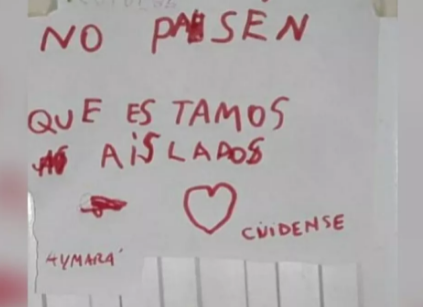 NO PASEN
QUE ES TAMOS
AISLADOS
CUIDENSE
AYMARA